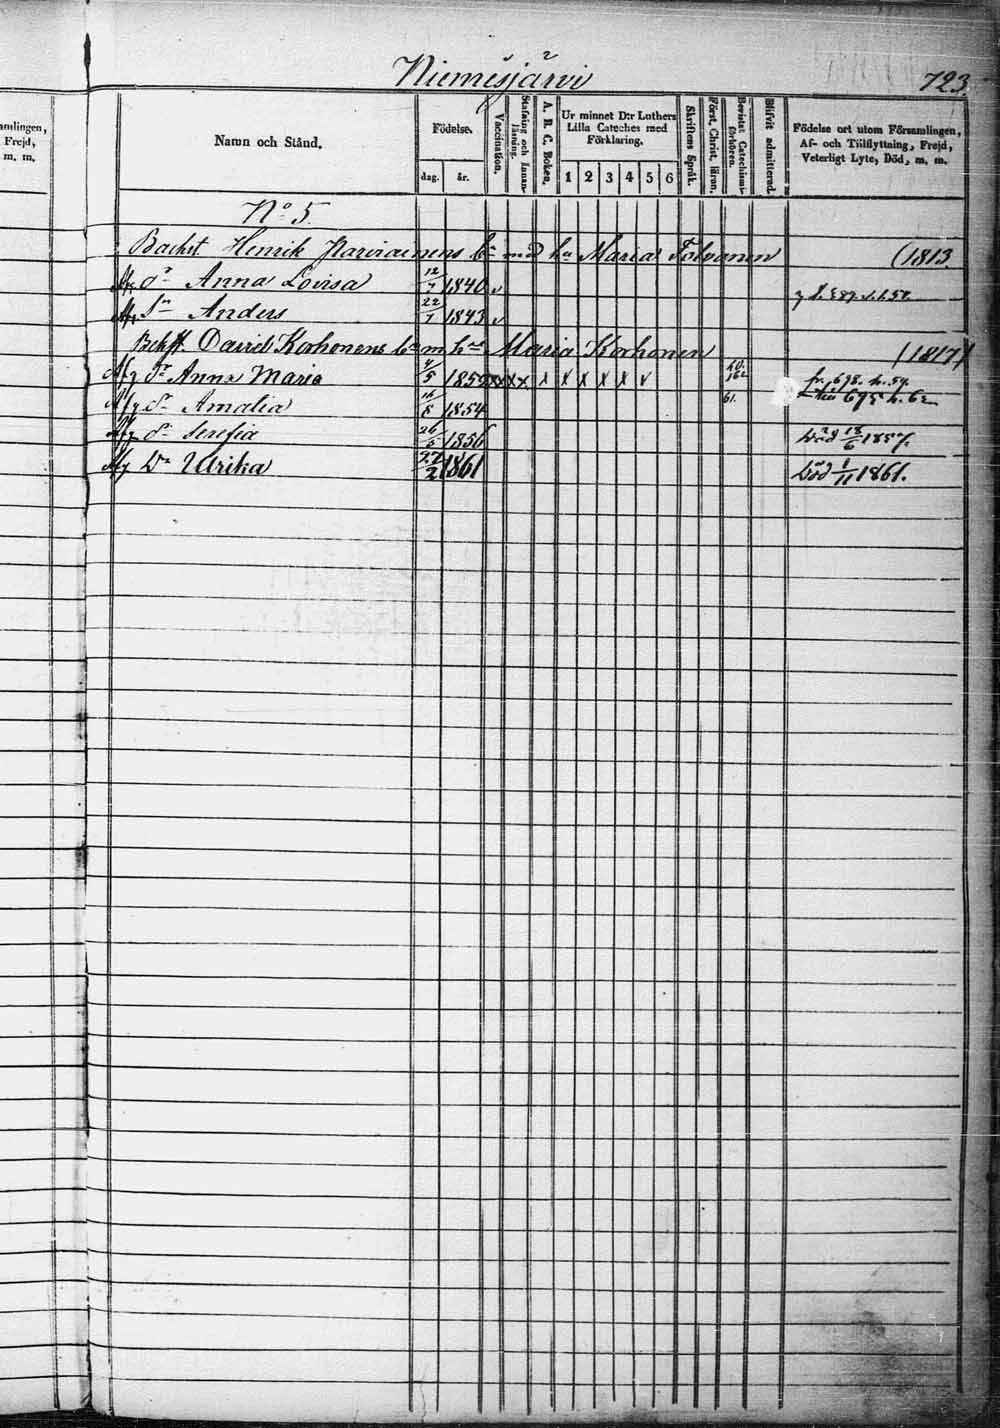 Niemisjärvi
723
amlingen,
Frejd,
m. m.
Namn och Stånd.
Födelse.
dag.
år.
Vaccination.
Stafning och Innan-läsning.
A. B. C. Boken.
Ur minnet D:r Luthers
Lilla Cateches med
Förklaring.
1 2 3 4 5 6
Skriftens Språk.
Först. Christ. läran.
Bevistat Catechismi-förhören.
Blifvit admitterad.
Födelse ort utom Församlingen,
Af- och Tillflyttning, Frejd,
Veterligt Lyte, Död, m. m.
No 5
Backst. Henrik Parviainens med Maria Tolvanen (1813
Anna Lovisa 12/7 1840 v
Anders 22/7 1843 v
David Korhonens Maria Korhonen (1817)
Afg Dr Anna Maria 5 x x x x x x x v fr. 698. h. 54.
Afg Dr Amalia 8 1854 61. 695 h. 62
Afg Dr Serefia 26/6 1856 Död 18/6 1857.
Afg Dr Ulrika 27/2 1861 Död 1/11 1861.